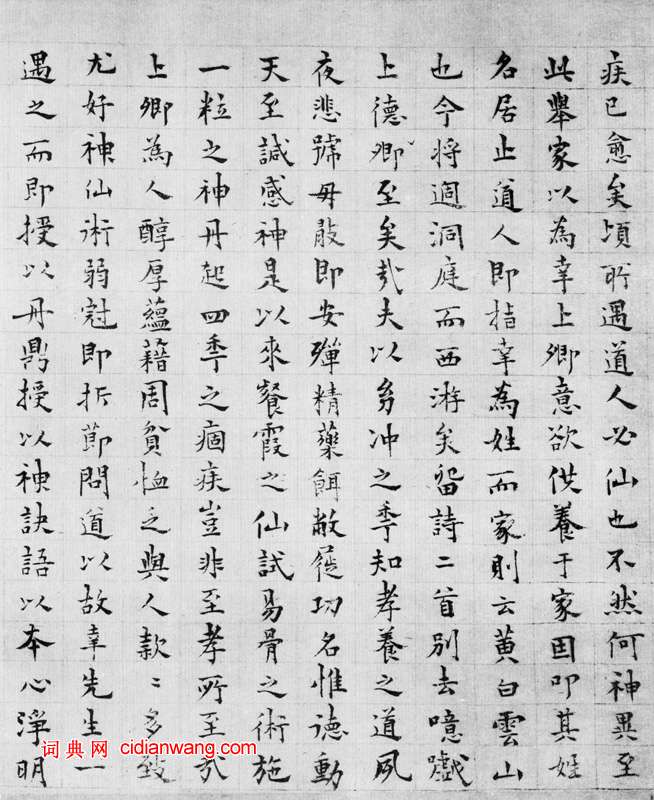 疾已愈矣頃所遇道人必仙也不然何神異至
此舉家以為幸上卿意欲供養于家因叩其姓
名居止道人即指幸為姓而家則云黃白雲山
也今將適洞庭而西游矣留詩二首別去噫嚱
上德卿至矣哉夫以幼冲之秊知孝養之道夙
夜悲號毋敢即安殫精藥餌敝屣功名惟德動
天至諴感神是以來餐霞之仙試易骨之術施
一粒之神丹起四秊之痼疾豈非至孝所至哉
上卿為人醇厚蘊籍周貧恤乏與人款〻多致
尤好神仙術弱冠即折節問道以故幸先生一
遇之而即授以丹鼎授以神訣語以本心淨明
词典网 cidianwang.com